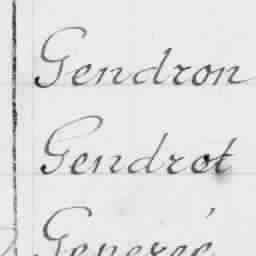 Gendron
Gendrot
Generéé